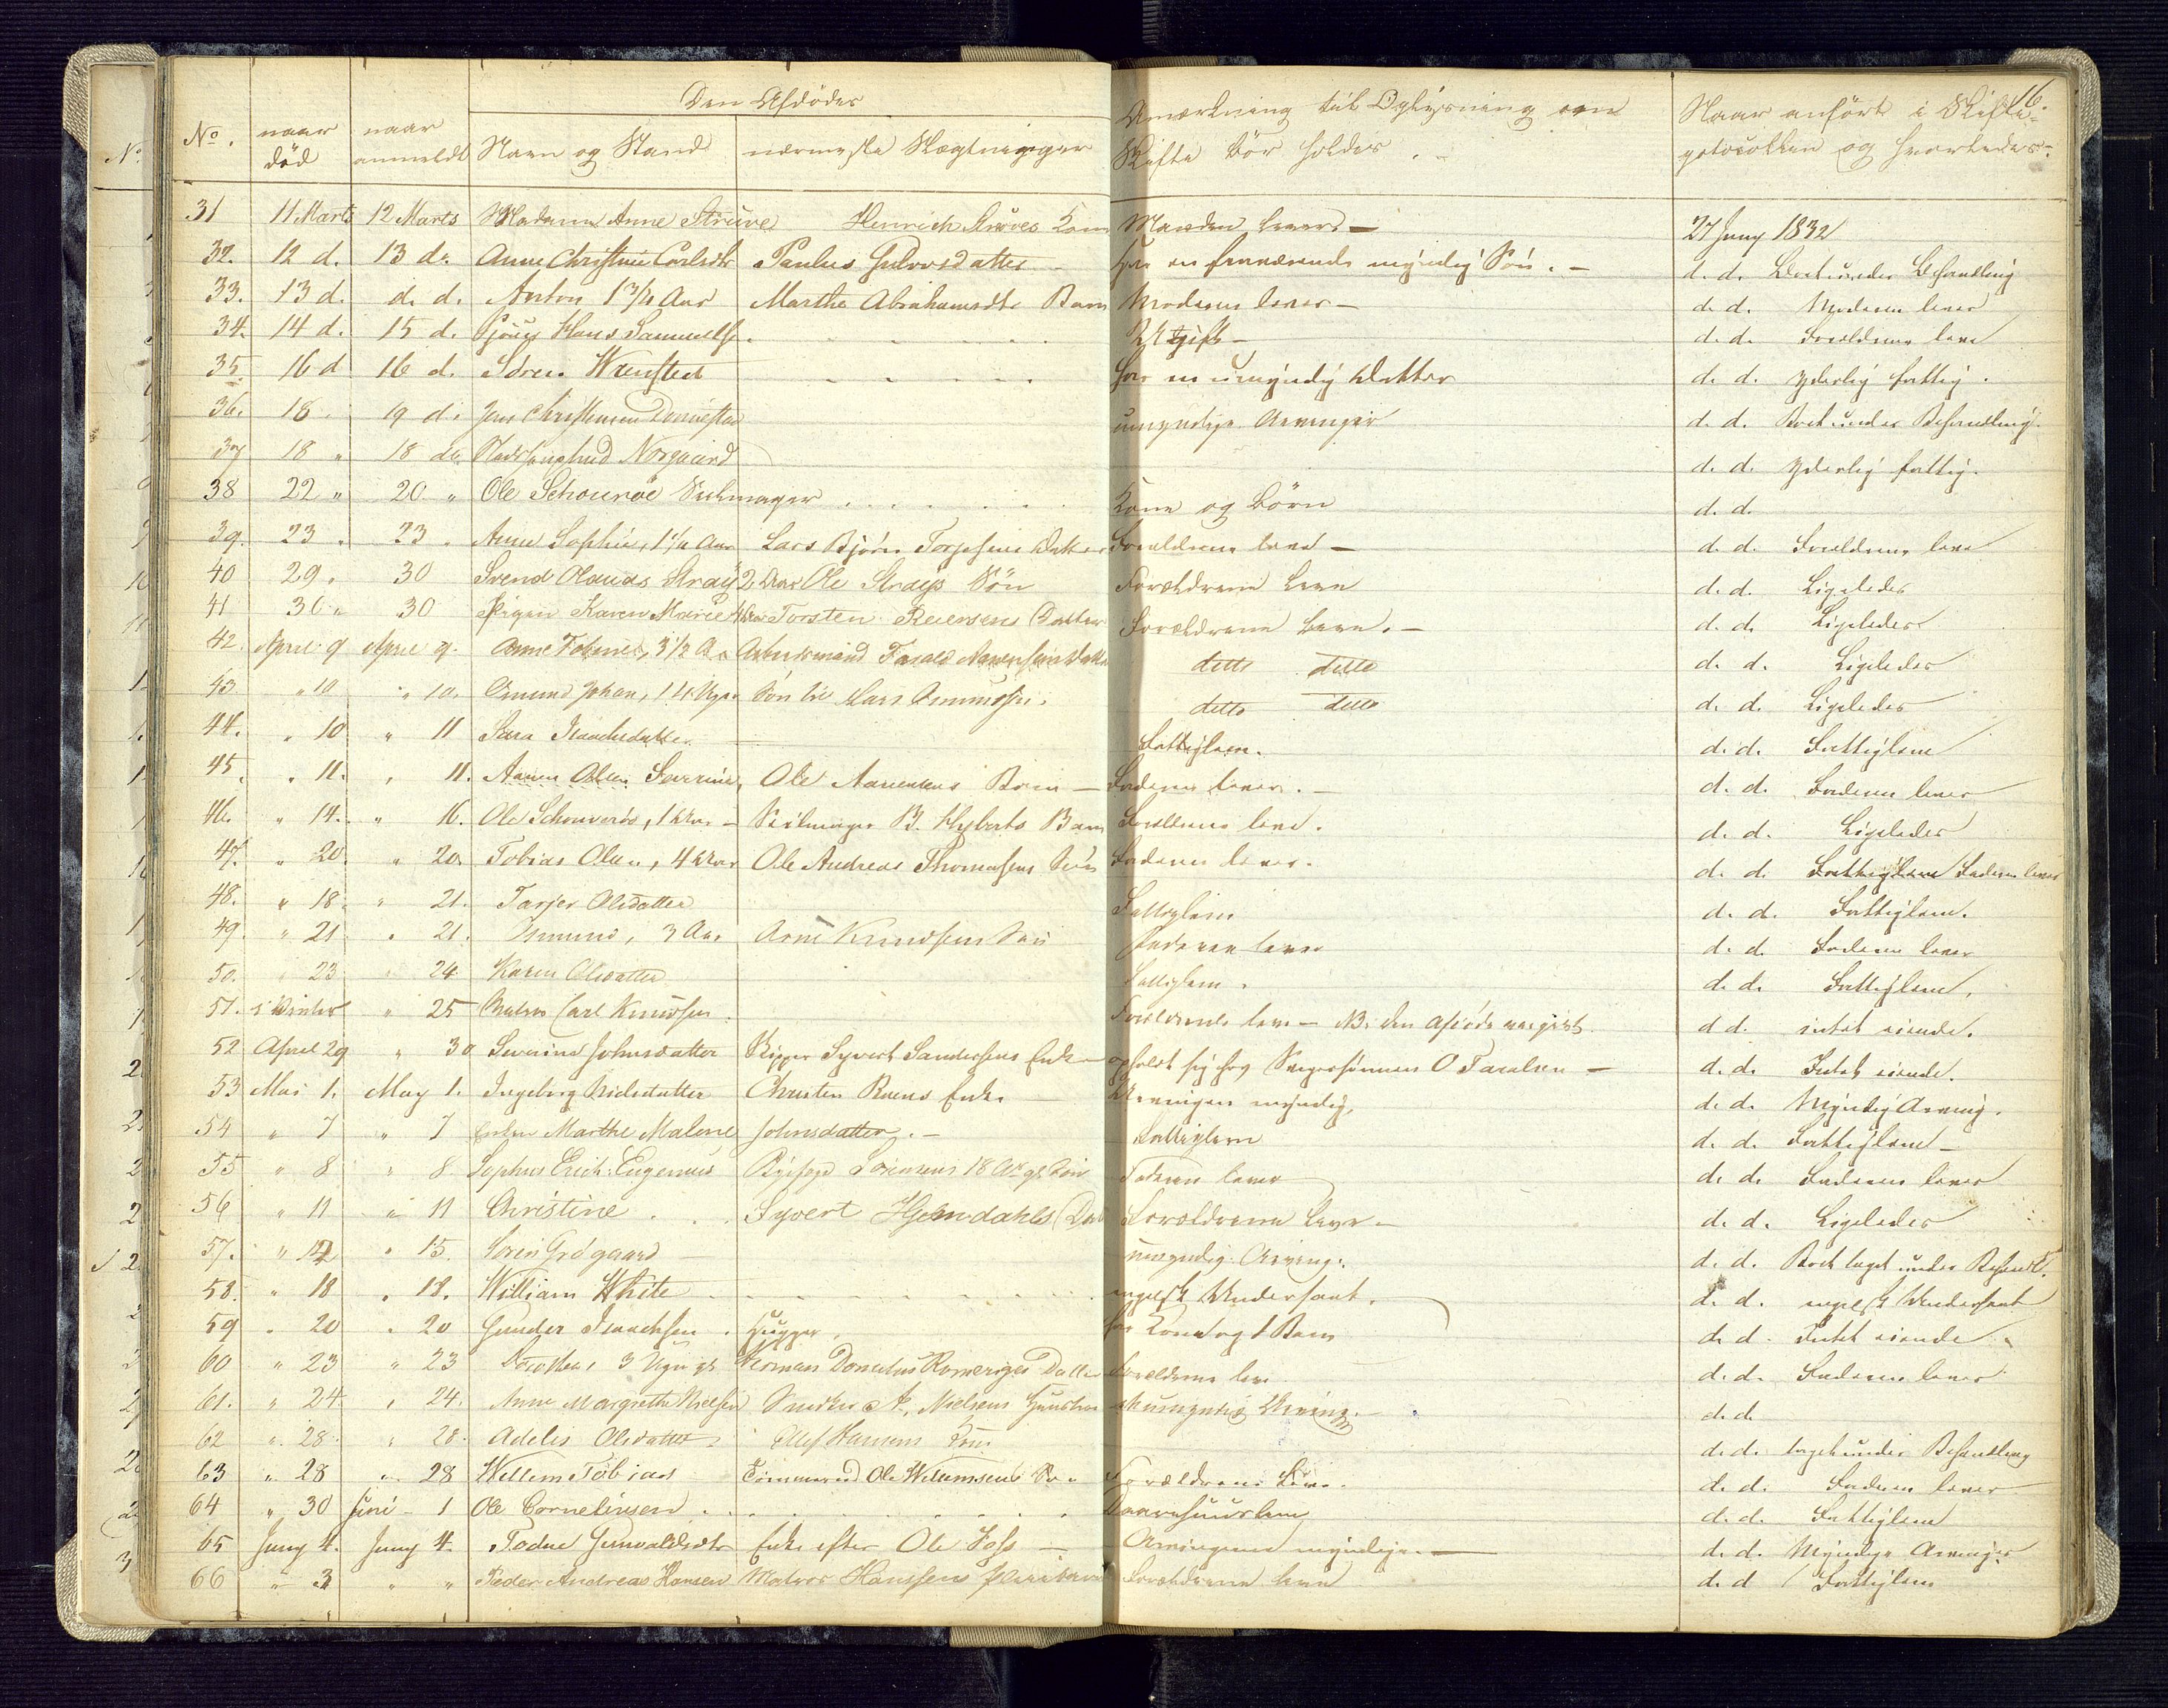 16.
Den Afdødes
Anmærkning til Oplysning om Skifte bør holdes
Naar anført i Skifteprotocollen og hvorledes
No. naar død naar anmeldt Navn og Stand nærmeste Slægtninger
31 11 Marts 12 Marts Madame Anne Strüve Henrich Strüves Kone Manden lever — 27 Juny 1832
32. 12 d. 13 d. Anne Christine Carlsdtr Paulus Gulovsdatter har en fraværende myndig Søn. — d. d. Boet under Behandling
33. 13 d. d. d. Anton 1 3/4 Aar Marthe Abrahamsdtr Barn Moderen lever — d. d. Moderen lever
34. 14 d. 15 d. Hans Samuelsen Ugift — d. d. Forældrene leve
35. 16 d 16 d. Sören Wrensted har en umyndig Datter d. d. yderlig fattig.
36. 18 19 d. Jens Christensen umyndige Arvinger d. d. Boet under Behandling.
37 18 " 18 do. Norgaard d. d. yderlig fattig.
38 22 " 20 " Ole Schouröe Kone og Börn d. d.
39. 23 " 23 " Anne Sophie, 1 1/2 Aar Lars Björn Torjesens Datter Forældrene leve — d. d. Forældrene leve
40 29 " 30 Svend Olaus Stray 2 Aar Ole Strays Sön Forældrene leve d. d. Ligeledes
41 30 " 30 Pigen Karen Marie 4 Aar Torsten Reiersens Datter Forældrene leve. — d. d. Ligeledes
42. April 9 April 9. Anne Tobine, 3 1/2 Aar Forældrene ditto ditto d. d. Ligeledes
43 " 10 " 10. Omund Johan, 14 Uger Sön til Lars Ommundsen. ditto ditto d. d. Ligeledes
44. " 10 " 11 Sara Isaachsdatter Fattiglem. d. d. Fattiglem
45. " 11. " 11. Aanen Olsen Severine, Ole Aanensens Barn — Faderen lever. — d. d. Faderen lever
46. " 14. " 16. Ole Schouveröe, 1 Aar — B. Hyberts Barn Forældrene leve. d. d. Ligeledes
47. " 20. " 20. Tobias Olsen, 4 Aar Ole Andreas Thomesens Sön Faderen lever. d. d. Fattiglem Faderen lever
48. " 18. " 21. Tarjer Olsdatter Fattiglem d. d. Fattiglem.
49. " 21 " 21. Omund, 3 Aar Arne Knudsens Sön Faderen lever d. d. Faderen lever
50. " 23 " 24 Karen Olsdatter Fattiglem. d. d. Fattiglem.
51. i Vinter " 25 Matros Carl Knudsen. Forældrene leve — NB: den Afdöde var gift. d. d. intet eiende.
52 April 29 " 30 Severine Johnsdatter Skipper Syvert Sandersens Enke opholdt sig hos Svigersønnen O Taralsen — d. d. Intet eiende.
53 Mai 1. May 1. Ingeborg Nielsdatter Christen Enke Arvingen myndig, d. d. Myndig Arving.
54 " 7 " 7 Enken Marthe Malene Johnsdatter. — Fattiglem d. d. Fattiglem —
55 " 8 " 8 Sophus Erich Eugenius Sörensens 18 Sön Faderen lever d. d. Faderen lever
56 " 11 " 11 Christine Syvert Hjemdahls Dat Forældrene leve. — d. d. Ligeledes
57. " 12 " 15. Sören Grögaard umyndig Arving. d. d. Boet taget under Behandl.
58. " 18 " 18. William White engelsk Undersaat. d. d. engelsk Undersaat
59 " 20 " 20 Gunder Isaachsen. Hugger. har Kone og 1 Barn d. d. Intet eiende.
60 " 23 " 23 Dorothea, 3 Uger gl. Herman Donatus Romeriges Datter Forældrene leve d. d. Faderen lever
61. " 24. " 24. Anne Margrethe Nielsen Snedker Nielsens Hustru umyndig Arving. — d. d.
62 " 28. " 28. Adelis Olsdatter Ellef Hansens Kone d. d. taget under Behandling
63 " 28 " 28 Willem Tobias Tömmermd Ole Willumsens Sön Forældrene leve. d. d. Faderen lever
64 " 30 Juni - 1 Ole Corneliusen. Daarehuuslem d. d. Fattiglem
65 Juny 4. Juny 4. Todne Gunvaldsdtr Enke efter Ole Foss — Arvingerne myndige. — d. d. Myndige Arvinger
66 " 3 " " Peder Andreas Hansen Matros Hanssens Forældrene leve d. d Fattiglem